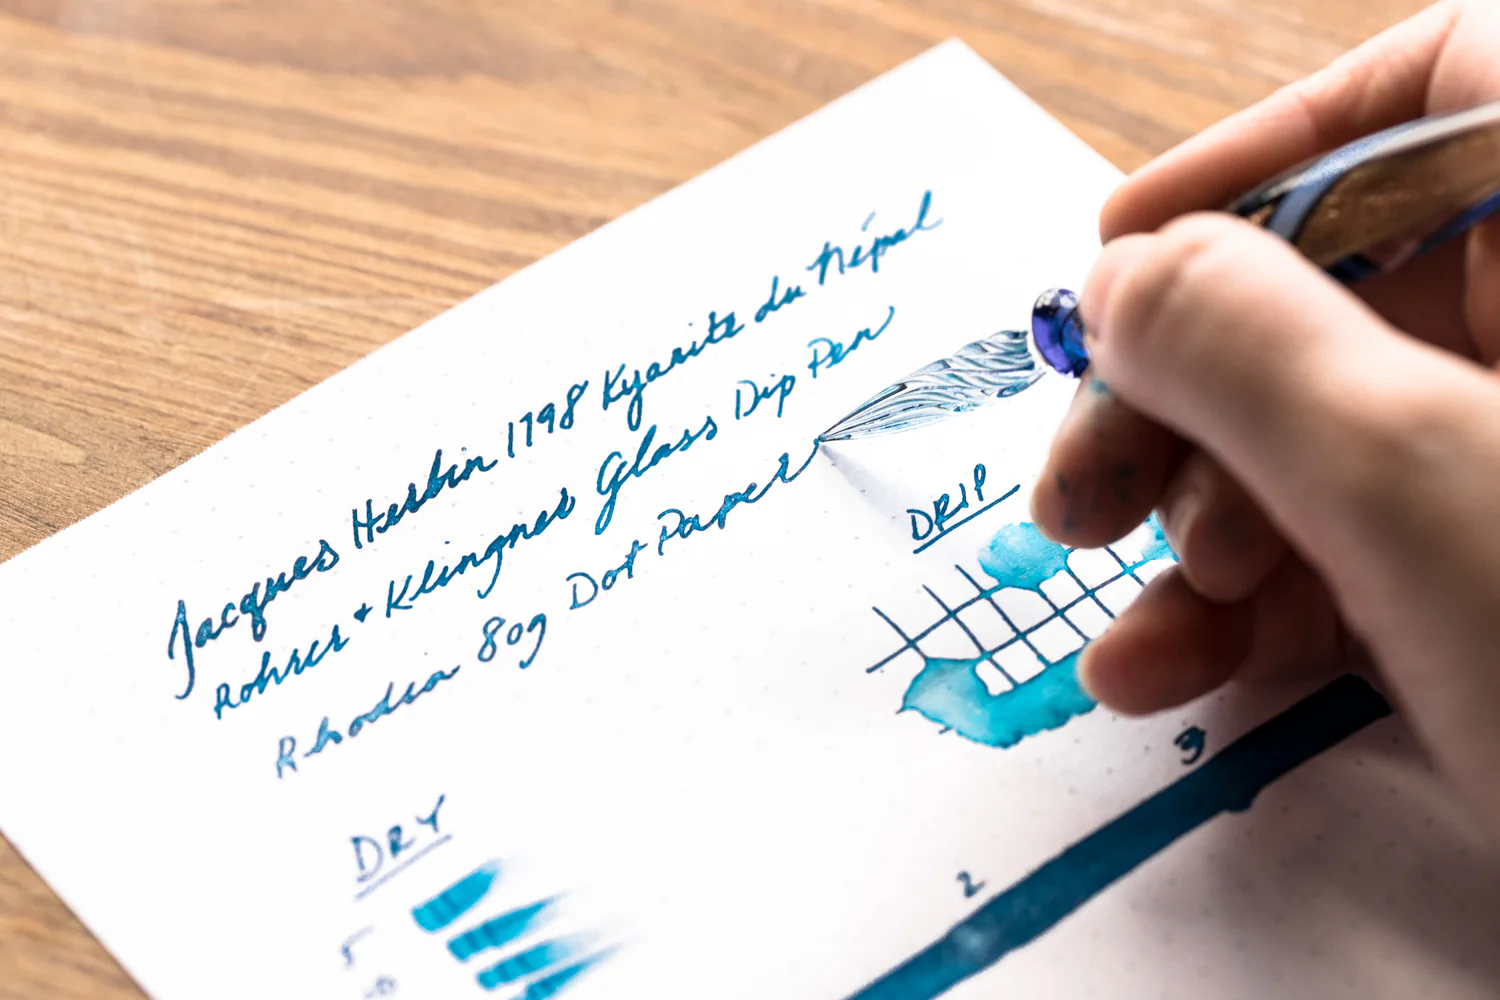 Jacques Herbin 1798 Kyanite du Népal
Rohrer + Klingner Glass Dip Pen
Rhodia 80g Dot Paper
DRIP
3
2
DRY
5